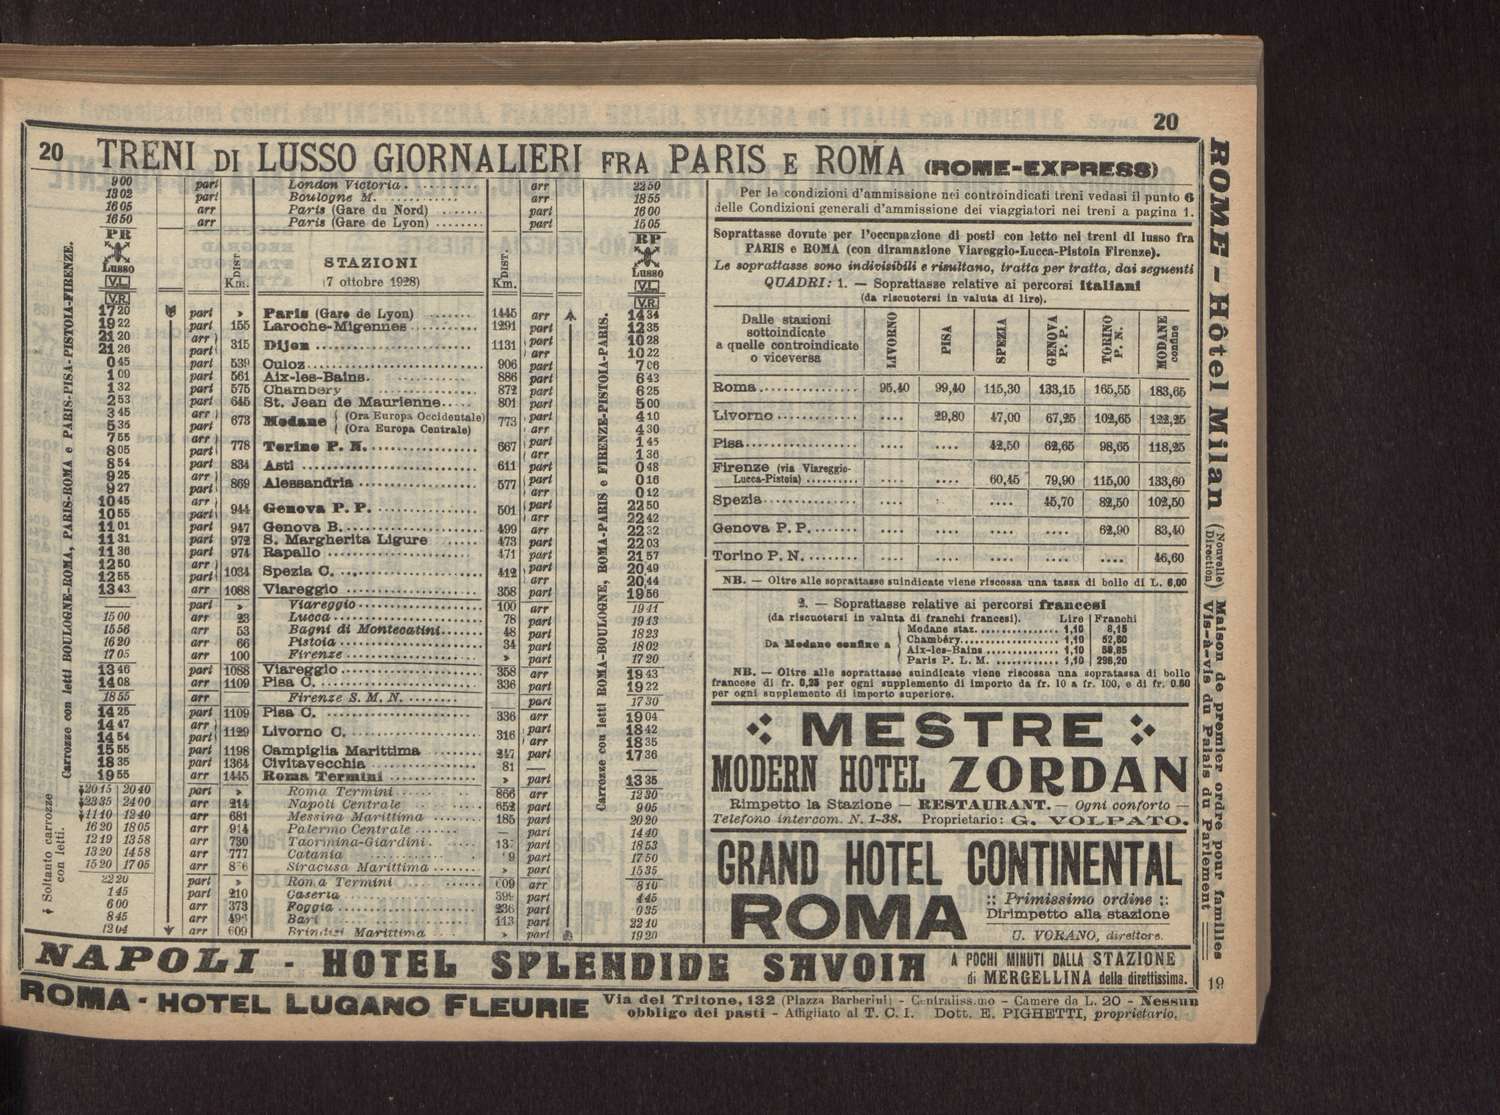 20
20 TRENI DI LUSSO GIORNALIERI FRA PARIS E ROMA (ROME-EXPRESS)
9 00 part London Victoria arr 22 50
13 02 part Boulogne M. arr 18 55
16 05 arr Paris (Gare du Nord) part 16 00
16 50 arr Paris (Gare de Lyon) part 15 05
PR Lusso V.L. V.R. DIST. Km. STAZIONI (7 ottobre 1928) DIST. Km. RP Lusso V.L. V.R.
Carrozze con letti BOULOGNE-ROMA, PARIS-ROMA e PARIS-PISA-PISTOIA-FIRENZE.
Carrozze con letti ROMA-BOULOGNE, ROMA-PARIS e FIRENZE-PISTOIA-PARIS.
17 20 part » Paris (Gare de Lyon) 1445 arr 14 34
19 22 part 155 Laroche-Migennes 1291 part 12 35
21 20 arr 315 Dijon 1131 part 10 28
21 26 part arr 10 22
0 45 part 539 Culoz 906 part 7 06
1 09 part 561 Aix-les-Bains. 886 part 6 43
1 32 part 575 Chambery 872 part 6 25
2 53 part 645 St. Jean de Maurienne 801 part 5 00
3 45 arr 673 Modane (Ora Europa Occidentale) 773 part 4 10
5 35 part (Ora Europa Centrale) arr 4 30
7 55 arr 778 Torino P. N. 667 part 1 45
8 05 part arr 1 36
8 54 part 834 Asti 611 part 0 48
9 25 arr 869 Alessandria 577 part 0 16
9 27 part arr 0 12
10 45 arr 944 Genova P. P. 501 part 22 50
10 55 part arr 22 42
11 01 part 947 Genova B. 499 arr 22 32
11 31 part 972 S. Margherita Ligure 473 part 22 03
11 36 part 974 Rapallo 471 part 21 57
12 50 arr 1034 Spezia C. 412 part 20 49
12 55 part arr 20,44
13 43 arr 1088 Viareggio 358 part 19 56
— part » Viareggio 100 arr 19 41
15 00 arr 23 Lucca 78 part 19 13
15 56 arr 53 Bagni di Montecatini 48 part 18 23
16 20 arr 66 Pistoia 34 part 18 02
17 05 arr 100 Firenze » part 17 20
13 46 part 1088 Viareggio 358 arr 19 43
14 08 arr 1109 Pisa C. 336 part 19 22
18 55 arr Firenze S. M. N. part 17 30
14 25 part 1109 Pisa C. 336 arr 19 04
14 47 arr 1129 Livorno C. 316 part 18 42
14 54 part arr 18 35
15 55 part 1198 Campiglia Marittima 247 part 17 36
18 35 part 1364 Civitavecchia 81
19 55 arr 1445 Roma Termini » part 13 35
20 15 20 40 part » Roma Termini 866 arr 12 30
23 35 24 00 arr 214 Napoli Centrale 652 part 9 05
11 10 12 40 arr 681 Messina Marittima 185 part 20 20
16 20 18 05 arr 914 Palermo Centrale — part 14 40
12 19 13 58 arr 730 Taormina-Giardini part 18 53
13 20 14 58 arr 777 Catania part 17 50
15 20 17 05 arr Siracusa Marittima » part 15 35
† Soltanto carrozze con letti.
22 20 part » Roma Termini 609 arr 8 10
1 45 part 210 Caserta 399 part 4 45
6 00 arr 373 Foggia 236 part 0 35
8 45 arr Bari 113 part 22 10
12 04 arr 609 Brindisi Marittima » part 19 20
Per le condizioni d'ammissione nei controindicati treni vedasi il punto 6
delle Condizioni generali d'ammissione dei viaggiatori nei treni a pagina 1.
Soprattasse dovute per l'occupazione di posti con letto nei treni di lusso fra
PARIS e ROMA (con diramazione Viareggio-Lucca-Pistoia Firenze).
Le soprattasse sono indivisibili e risultano, tratta per tratta, dai seguenti
QUADRI: 1. — Soprattasse relative ai percorsi italiani
(da riscuotersi in valuta di lire).
Dalle stazioni sottoindicate a quelle controindicate o viceversa LIVORNO PISA SPEZIA GENOVA P. P. TORINO P. N. MODANE confine
Roma 95,40 99,40 115,30 133,15 165,55 183,65
Livorno .... 29,80 47,00 67,25 102,65 122,25
Pisa .... .... 42,50 62,65 98,65 118,25
Firenze (via Viareggio-
Lucca-Pistoia) .... .... 60,45 79,90 115,00 133,60
Spezia .... .... .... 45,70 82,50 102,50
Genova P. P. .... .... .... .... 62,90 83,40
Torino P. N. .... .... .... .... .... 46,60
NB. — Oltre alle soprattasse suindicate viene riscossa una tassa di bollo di L. 6,00
2. — Soprattasse relative ai percorsi francesi
(da riscuotersi in valuta di franchi francesi). Lire Franchi
Da Modane confine a
Modane staz. 1,10 8,15
Chambéry 1,10 52,80
Aix-les-Bains 1,10 58,85
Paris P. L. M. 1,10 296,20
NB. — Oltre alle soprattasse suindicate viene riscossa una sopratassa di bollo
francese di fr. 0,25 per ogni supplemento di importo da fr. 10 a fr. 100, e di fr. 0.50
per ogni supplemento di importo superiore.
MESTRE
MODERN HOTEL ZORDAN
Rimpetto la Stazione — RESTAURANT. — Ogni conforto —
Telefono intercom. N. 1-38. Proprietario: G. VOLPATO.
GRAND HOTEL CONTINENTAL
ROMA :: Primissimo ordine ::
Dirimpetto alla stazione
U. VORANO, direttore.
NAPOLI - HOTEL SPLENDIDE SAVOIA A POCHI MINUTI DALLA STAZIONE
di MERGELLINA della direttissima.
ROMA - HOTEL LUGANO FLEURIE Via del Tritone, 132 (Piazza Barberini) - Centralissimo - Camere da L. 20 - Nessun
obbligo dei pasti - Affigliato al T. C. I. Dott. E. PIGHETTI, proprietario.
ROME - Hôtel Milan (Nouvelle Direction) Maison de premier ordre pour familles
Vis-à-vis du Palais du Parlement
19